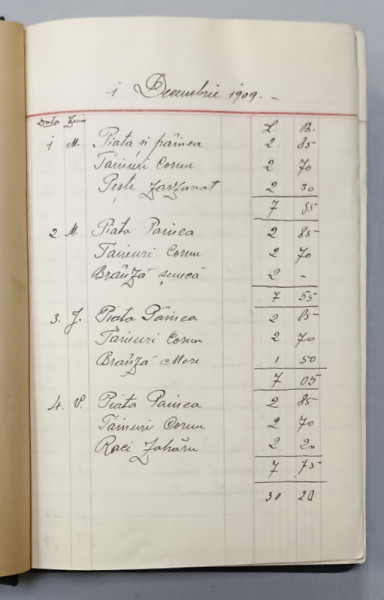 1 Decembrie 1909.-
Data Ziua
L. B.
1 M. Piata și pâinea 2 85
Făinuri Cornu 2 70
Pește zarzavat 2 30
7 85
2 M. Piata Painea 2 85
Făinuri Cornu 2 70
Brânză șuncă 2 -
7 55
3. J. Piata Pâinea 2 85
Făinuri Cornu 2 70
Brânză Mere 1 50
7 05
4. V. Piata Painea 2 85
Făinuri Cornu 2 70
Raci Zahăru 2 20
7 75
30 20